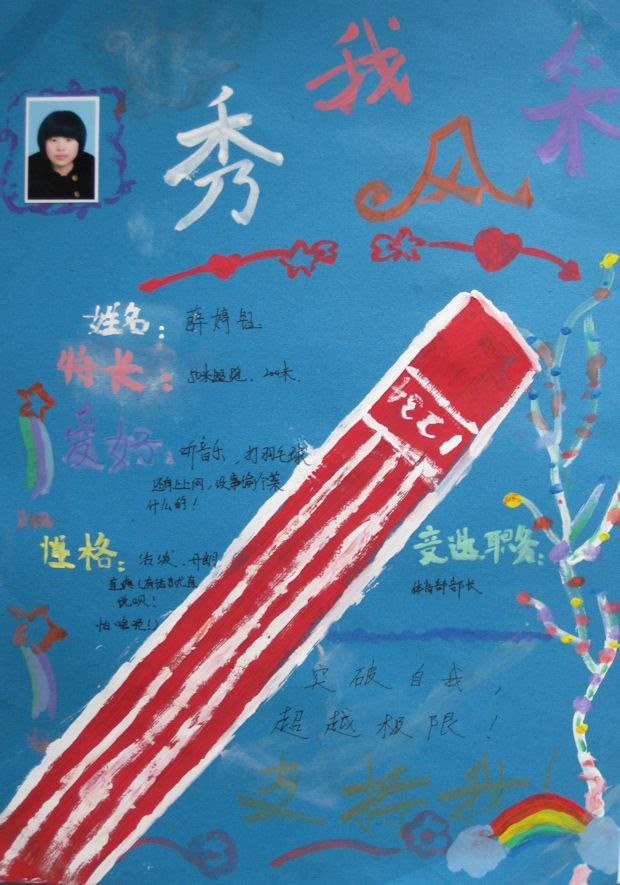 秀我风采
姓名：薛婷钰
特长：50米短跑、200米.
爱好：听音乐，打羽毛球
还有上上网，没事偷个菜
什么的！
性格：活泼、开朗
直爽（有话就直
说呗！
怕啥完!）
1234
竞选职务：
体育部部长
突破自我，
超越极限！
支持我！